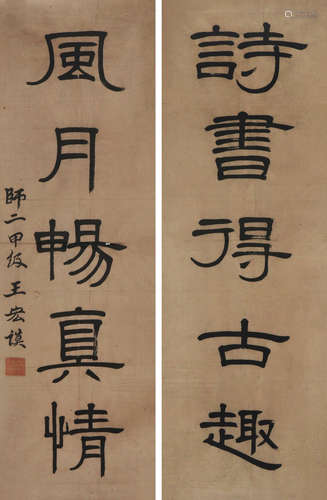 詩書得古趣
風月暢真情
師二甲級王宏謨